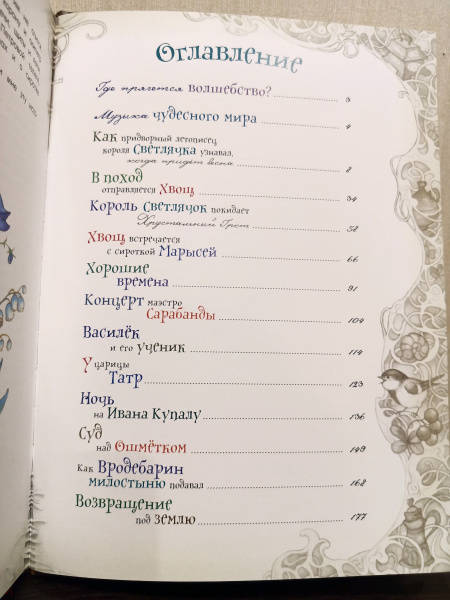 Оглавление
Где прячется волшебство? 3
Музыка чудесного мира 4
Как придворный летописец
короля Светлячка узнавал,
когда придёт весна 8
В поход
отправляется Хвощ 34
Король Светлячок покидает
Хрустальный Грот 58
Хвощ встречается
с сироткой Марысей 66
Хорошие
времена 91
Концерт маэстро
Сарабанды 104
Василёк
и его ученик 114
У царицы
Татр 123
Ночь
на Ивана Купалу 136
Суд
над Ошмётком 149
Как Вродебарин
милостыню подавал 168
Возвращение
под землю 177